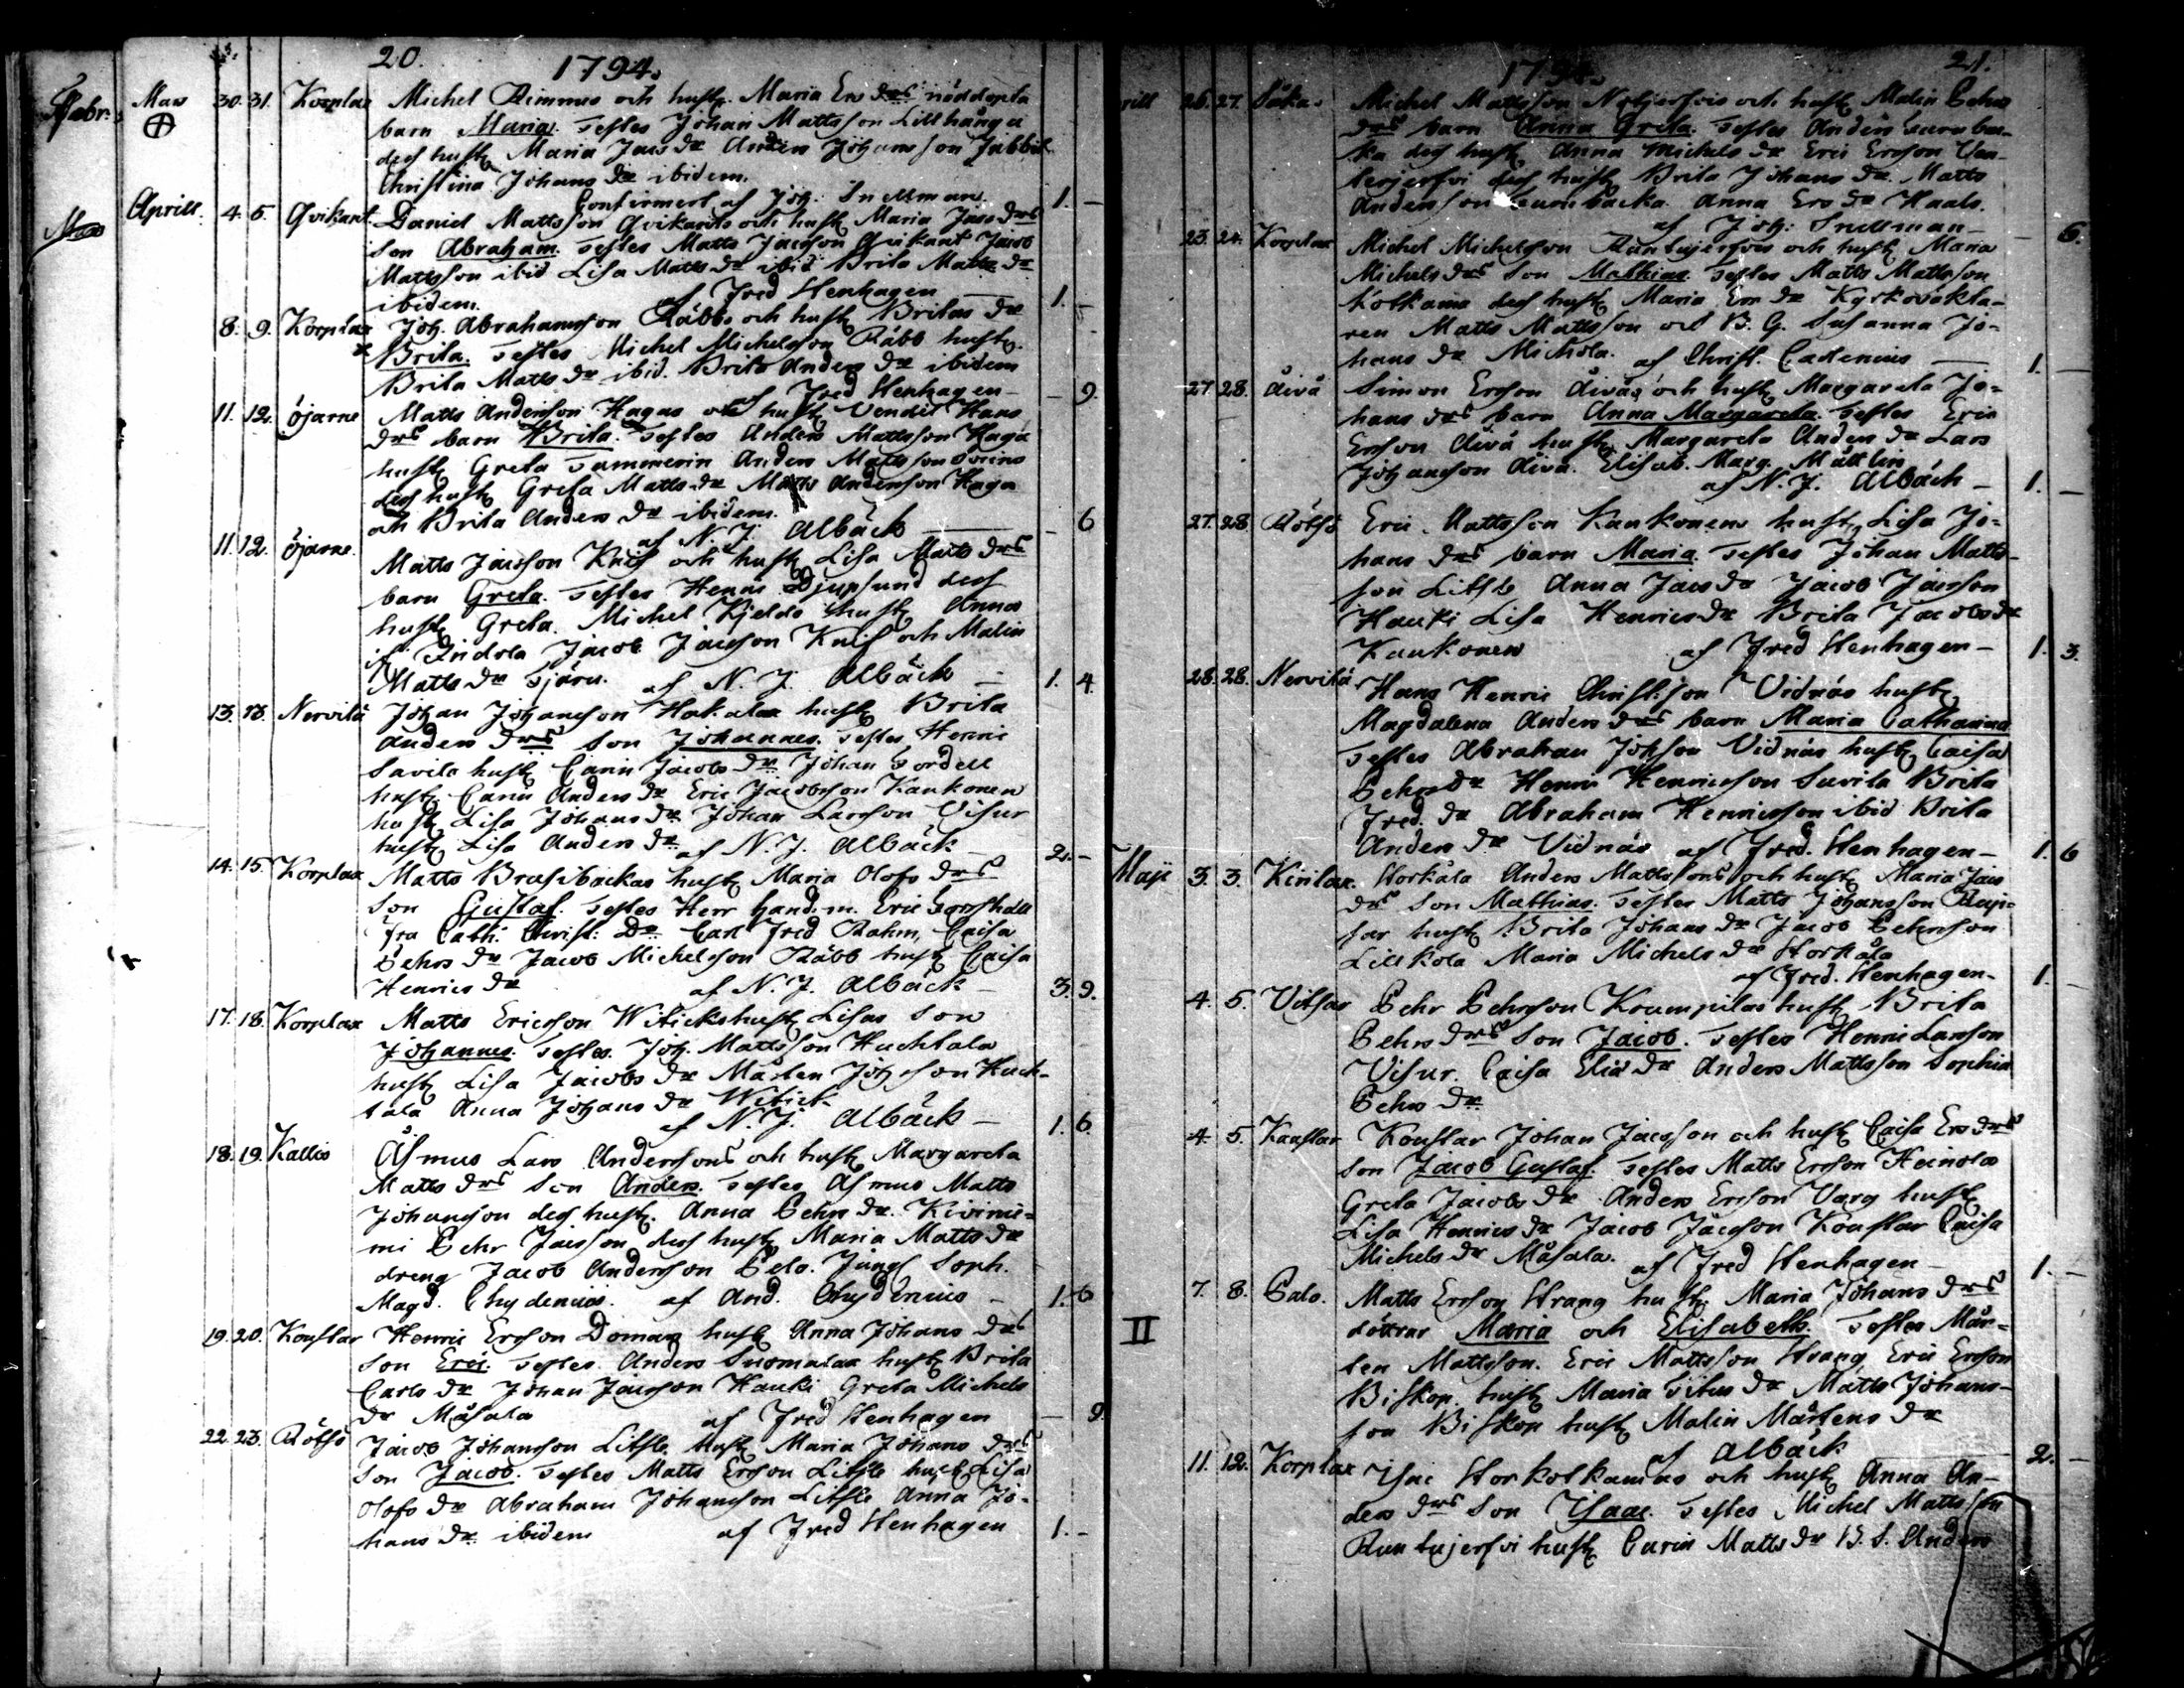 20.
1794.
Mars 30. 31. Korplax Michel Rimmus och hust. Maria Ers drs nöddöpta
barn Maria. Testes Johan Mattsson Lillhanga
des hust. Maria Jacs dr Anders Johansson
Christina Johans dr ibidem.
Confirmert af Joh: Snellman. 1. –
Aprill. 4. 5. Qvikant. Daniel Mattsson Qvikants och hust Maria Jacs drs
son Abraham. Testes Matts Jacsson Qvikant Jacob
Mattsson ibid Lisa Matts dr ibid Brita Matts dr
ibidem. af Fred Stenhagen 1. –
8. 9. Korplax Joh. Abrahamsson Räbbs och hust Britas dr
Brita. Testes Michel Michelsson Räbb hust.
Brita Matts dr ibid. Brita Anders dr ibidem
af Fred Stenhagen – – 9.
11. 12. Öjarne Matts Andersson Hagas och hust Vendil Hans
drs barn Brita. Testes Anders Mattsson Haga
hust Greta Anders Mattsson
des hust Greta Matts dr Matts Andersson Haga
och Brita Anders dr ibidem.
af N. J. Albäck – 6
11. 12. Öjarne. Matts Jacsson Knif och hust Lisa Matts drs
barn Greta. Testes Henric Djupsund des
hust Greta. Michel Kjeldo hust Anna
Indola Jacob Jacsson Knif och Malin
Matts dr af N. J. Albäck – 1. 4.
13. 13. Nervilä Johan Johansson Hakala hust Brita
Anders drs son Johannes. Testes Henric
Savila hust Carin Jacobs dr Johan Fordell
hust Carin Anders dr Eric Jacobsson Kaukonen
hust Lisa Johans dr Johan Larsson Visur
hust Lisa Anders dr af N. J. Albäck 2. –
14. 15. Korplax Matts Brasibackas hust Maria Olofs drs
son Gustaf. Testes Herr Handm. Eric
fru Cath: Christ: dr Carl Fred Rahm, Caisa
Pehrs dr Jacob Michelsson Räbb hust Caisa
Henrics dr af N. J. Albäck – 3. 9.
17. 18. Korplax Matts Ericsson Witicks hust Lisas son
Johannes. Testes. Joh. Mattsson Huchtala
hust Lisa Jacobs dr Mårten Johsson Huch-
tala Anna Johans dr Witick
af N. J. Albäck – 1. 6.
18. 19. Kallis Åsmus Lars Anderssons och hust Margareta
Matts drs son Anders. Testes Åsmus Matts
Johansson des hust. Anna Pehrs dr. Kivinie-
mi Pehr Jacsson des hust Maria Matts dr
dreng Jacob Andersson Pelo. Jungf Soph.
Magd. Chydenius. af And. Chydenius – 1. 6
19. 20. Konstar Henric Ersson Domars hust Anna Johans drs
son Eric. Testes. Anders Suomalax hust Brita
Carls dr Johan Jacsson Hauki Greta Michels
dr Måsala af Fred Stenhagen – 9
22. 23. Rölsö Jacob Johansson Litsle hust Maria Johans drs
son Jacob. Testes Matts Ersson Litsle hust Lisa
Olofs dr Abraham Johansson Litsle Anna Jo-
hans dr ibidem af Fred Stenhagen 1. –
21.
rill 26. 27. Såka. Michel Mattsson och hust Malin Pehrs
drs barn Anna Greta. Testes Anders
ka des hust Anna Michels dr Eric Ersson Ven-
terjerfvi des hust Brita Johans dr. Matts
Andersson Anna Ers dr Haals.
af Joh: Snellman – – 6.
23. 24. Korplax Michel Michelsson Runtujerfvis och hust Maria
Michels drs son Mathias. Testes Matts Mattsson
Kolkama des hust Maria Ers dr Kyrkoväkta-
ren Matts Mattsson och B. G. Susanna Jo-
hans dr Michola. af Christ. 1. –
27 28. Åivå Simon Ersson Åivås och hust Margareta Jo-
hans drs barn Anna Margareta. Testes Eric
Ersson Åivå hust Margareta Anders dr Lars
Johansson Åivå. Elisab. Marg.
af N. J. Albäck – 1. –
27. 28 Rölsö Eric Mattsson Kaukonens hust Lisa Jo-
hans drs barn Maria. Testes Johan Matts-
son Litsle Anna Jacs dr Jacob Jacsson
Hauki Lisa Henrics dr Brita Jacobs dr
Kaukonen af Fred Stenhagen – 1. 3.
28. 28. Nervilä Hans Henric Christ.son Vidnäs hust
Magdalena Anders drs barn Maria Catharina
Testes Abraham Johsson Vidnäs hust Caisa
Pehrs dr Henric Henricsson Savila Brita
Fred. dr Abraham Henricsson ibid Brita
Anders dr Vidnäs af Fred. Stenhagen – 1. 6
Maji 3. 3. Kirilax. Storkåla Anders Mattssons och hust Maria Jacs
drs son Mathias. Testes Matts Johansson
hust Brita Johans dr Jacob Pehrsson
Lillkåla Maria Michels dr Storkåla
af Fred. Stenhagen – 1. –
4. 5. Vitsar Pehr Pehrsson Krumpilas hust Brita
Pehrs drs son Jacob. Testes Henric Larsson
Visur. Caisa Elia dr Anders Mattsson Sophia
Pehrs dr
4. 5. Konstar Konstar Johan Jacsson och hust Caisa Ers drs
son Jacob Gustaf. Testes Matts Ersson Heinola
Greta Jacobs dr Anders Ersson Varg hust
Lisa Henrics dr Jacob Jacsson Konstar Caisa
Michels dr Måsala. af Fred Stenhagen – 1. –
7. 8. Palo. Matts Ersson Strang hust. Maria Johans drs
II döttrar Maria och Elisabeth. Testes Mår-
ten Mattsson. Eric Mattsson Strang Eric Ersson
Biskop. hust Maria dr Matts Johans-
son Biskop hust Malin Mårtens dr
af Albäck 2. –
11. 12. Korplax Isac Storkolkamas och hust Anna An-
ders drs son Isaac. Testes Michel Mattsson
Runtujerfvi hust Carin Matts dr B. S. Anders